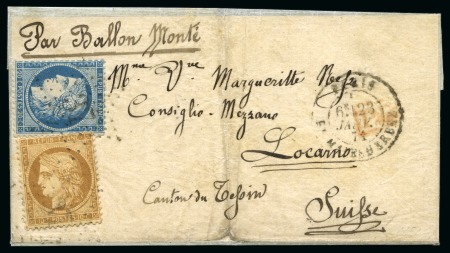 Par Ballon Monté
Mme Vve Margueritte
Consiglio-Mezzano
Locarno
Canton du Tessin
Suisse
PARIS